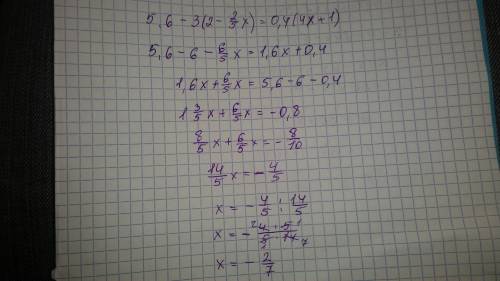 5,6-3(2-2/5x)=0,4(4x+1)
5,6-6-6/5x=1,6x+0,4
1,6x+6/5x=5,6-6-0,4
1 3/5x+6/5x=-0,8
8/5x+6/5x=-8/10
14/5x=-4/5
x=-4/5:14/5
x=-²4·5¹/₁5·14₇
x=-2/7